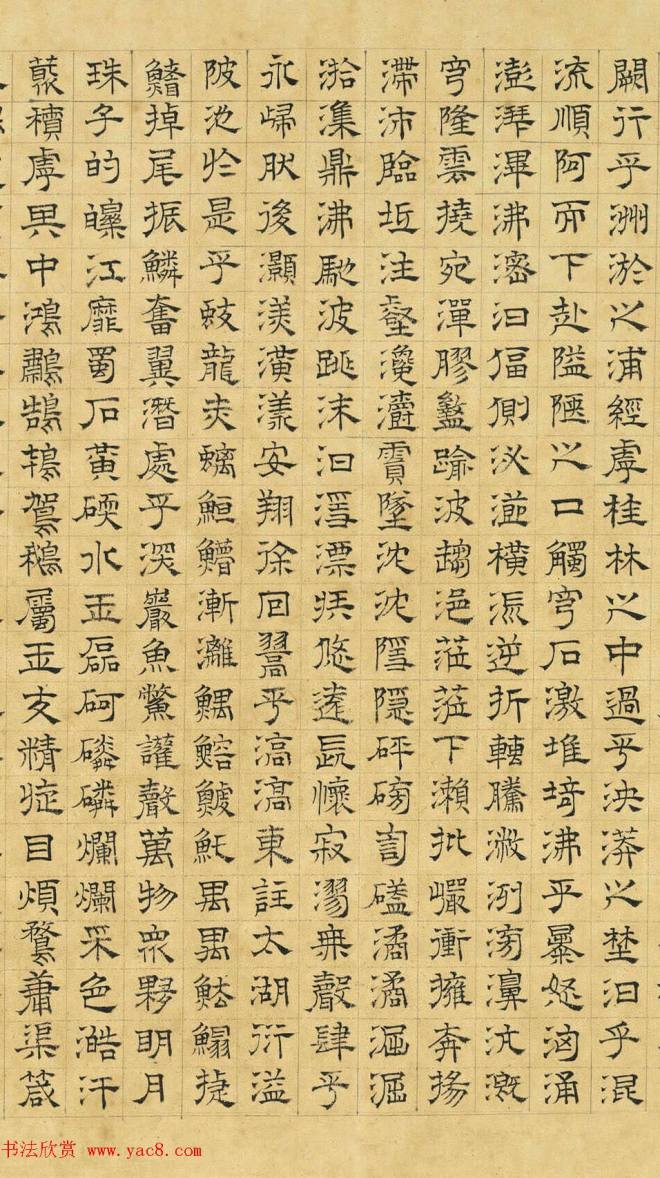 闕行乎洲淤之浦經虖桂林之中過乎泱漭之埜汩乎混
流順阿而下赴隘陿之口觸穹石激堆埼沸乎暴怒洶涌
澎湃滭沸滵汩偪側泌瀄橫流逆折轉騰潎洌滂濞沆溉
穹隆雲橈宛潬膠盭踰波趨浥蒞蒞下瀨批巖衝擁奔揚
滯沛臨坻注壑瀺灂霣墜沈沈隱隱砰磅訇磕潏潏淈淈
湁潗鼎沸馳波跳沫汩㴔漂疾悠遠長懷寂漻無聲肆乎
永歸肰後灝溔潢漾安翔徐回翯乎滈滈東註太湖衍溢
陂池於是乎蛟龍赤螭䱭䲛漸離鰅鰫鰬魠禺禺魼鰨揵
鰭掉尾振鱗奮翼潛處乎深巖魚鱉讙聲萬物眾夥明月
珠子的皪江靡蜀石黃碝水玉磊砢磷磷爛爛采色澔汗
藂積虖其中鴻鷫鵠鴇鴐鵝屬玉交精旋目煩鶩庸渠箴
书法欣赏 www.yac8.com